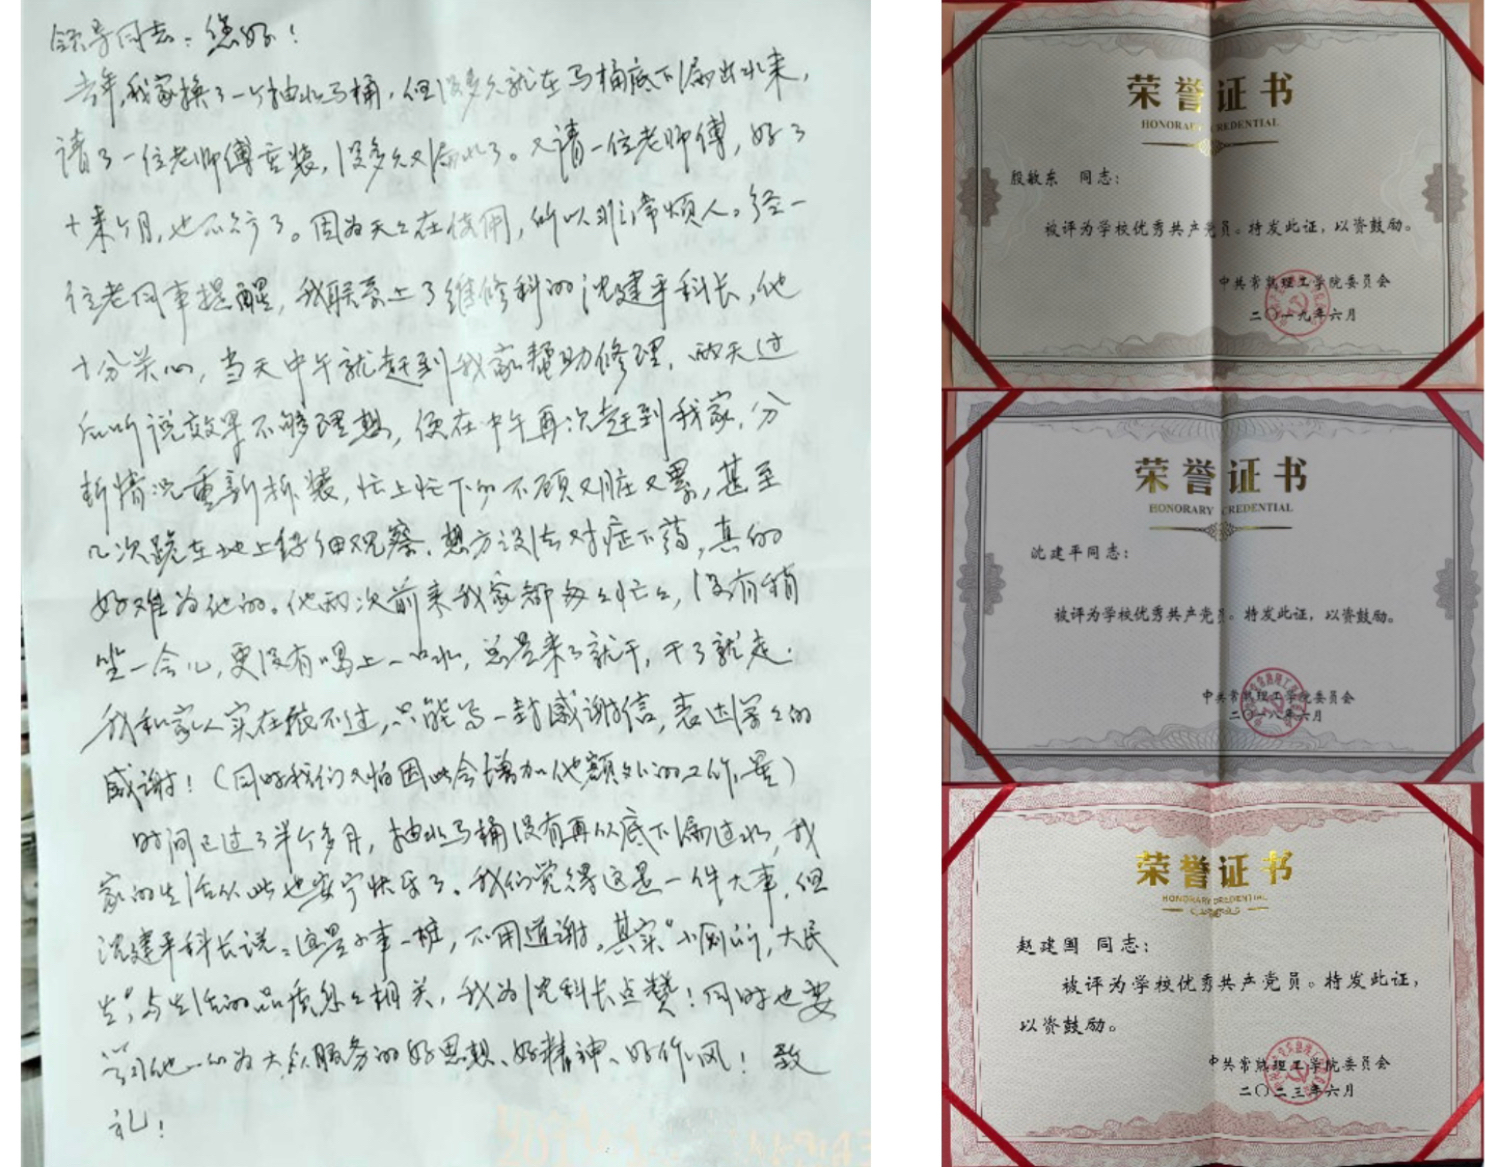 领导同志：您好！
去年，我家换了一个抽水马桶，但没多久就在马桶底下漏出水来，
请了一位老师傅重装，没多久又漏水了。又请一位老师傅，好了
十来个月，也不行了。因为天天在使用，所以非常烦人。经一
位老同事提醒，我联系上了维修科的沈建平科长，他
十分关心，当天中午就赶到我家帮助修理，两天过
后听说效果不够理想，便在中午再次赶到我家，分
析情况重新拆装，忙上忙下的不顾又脏又累，甚至
几次跪在地上仔细观察，想方设法对症下药，真的
好难为他的。他两次前来我家都匆匆忙忙，没有稍
坐一会儿，更没有喝上一口水，总是来了就干，干了就走。
我和家人实在很不过，只能写一封感谢信，表达深深的
感谢！（同时我们又怕因此会增加他额外的工作量）
时间已过了半个多月，抽水马桶没有再从底下漏过水，我
家的生活从此也安宁快乐了。我们觉得这是一件大事，但
沈建平科长说：这是小事一桩，不用道谢。其实“小厕所，大民
生”，与生活的品质息息相关，我为沈科长点赞！同时也要
学习他一心为大众服务的好思想、好精神、好作风！致
礼！
荣誉证书
HONORARY CREDENTIAL
殷敏东 同志：
被评为学校优秀共产党员。特发此证，以资鼓励。
中共常熟理工学院委员会
二〇一九年六月
荣誉证书
HONORARY CREDENTIAL
沈建平同志：
被评为学校优秀共产党员。特发此证，以资鼓励。
中共常熟理工学院委员会
二〇一八年六月
荣誉证书
HONORARY CREDENTIAL
赵建国 同志：
被评为学校优秀共产党员。特发此证，
以资鼓励。
中共常熟理工学院委员会
二〇二三年六月